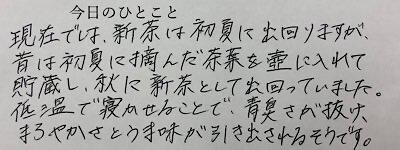 今日のひとこと
現在では、新茶は初夏に出回りますが、
昔は初夏に摘んだ茶葉を壺に入れて
貯蔵し、秋に新茶として出回っていました。
低温で寝かせることで、青臭さが抜け、
まろやかさとうま味が引き出されるそうです。